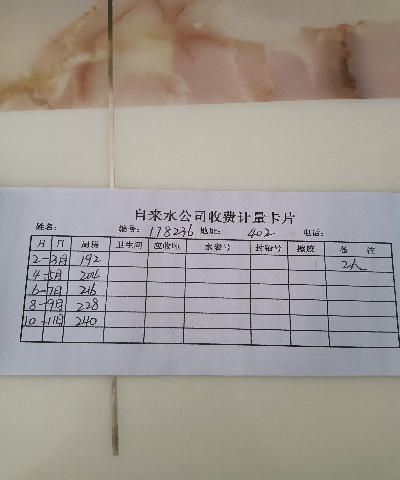 自来水公司收费计量卡片
姓名: 编号: 178236 地址: 402 电话:
月 日 厨房 卫生间 应收吨 水卷号 封铅号 换波 备 注
2-3月 192 2人
4-5月 204
6-7月 216
8-9月 228
10-11月 240